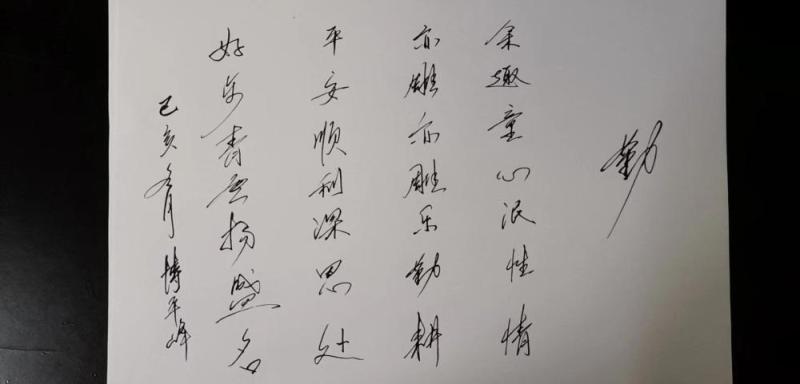 勤
余趣童心泯性情
亦雕亦雕乐勤耕
平安顺利深思处
好亨青云扬盛名
己亥冬月 博平峰